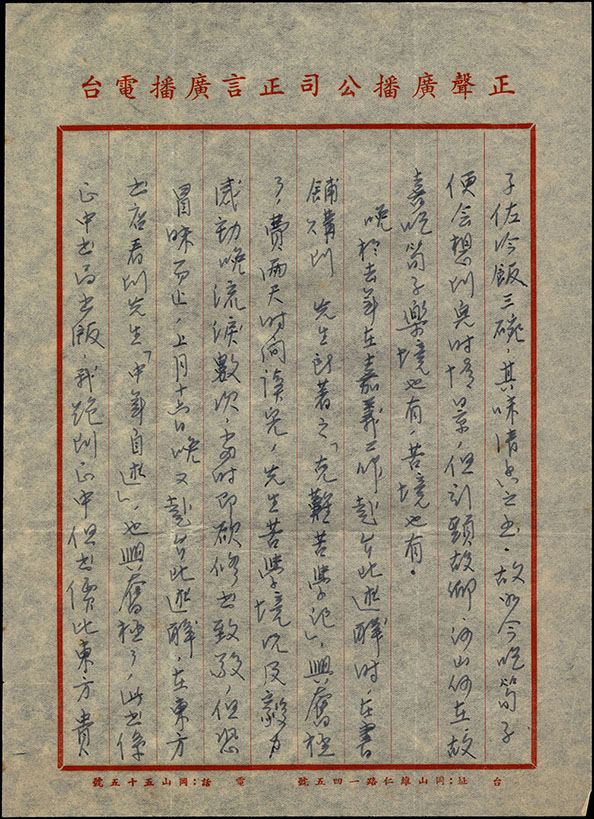 正聲廣播公司正言廣播電台
子佐冷飯三碗,其味清香之至。故如今吃筍子
便会想到兒时情景,但引頸故鄉,河山何在故
喜吃筍子樂境也有,苦境也有。
晚於去年在嘉義工作赴台北述職时,在書
鋪購到 先生所著之「克難苦學記」,興奮極
了,費兩天时间讀完,先生苦學境况及毅力
感動晚流淚數次,當时即欲修书致敬,但恐
冒昧而止,上月十六日晚又赴台北述職,在東方
书店看到先生「中年自述」,也興奮極了,此书係
正中书局出版,我跑到正中但书價比東方貴
台 址:岡山維仁路一四五號 電 話:岡山五十五號